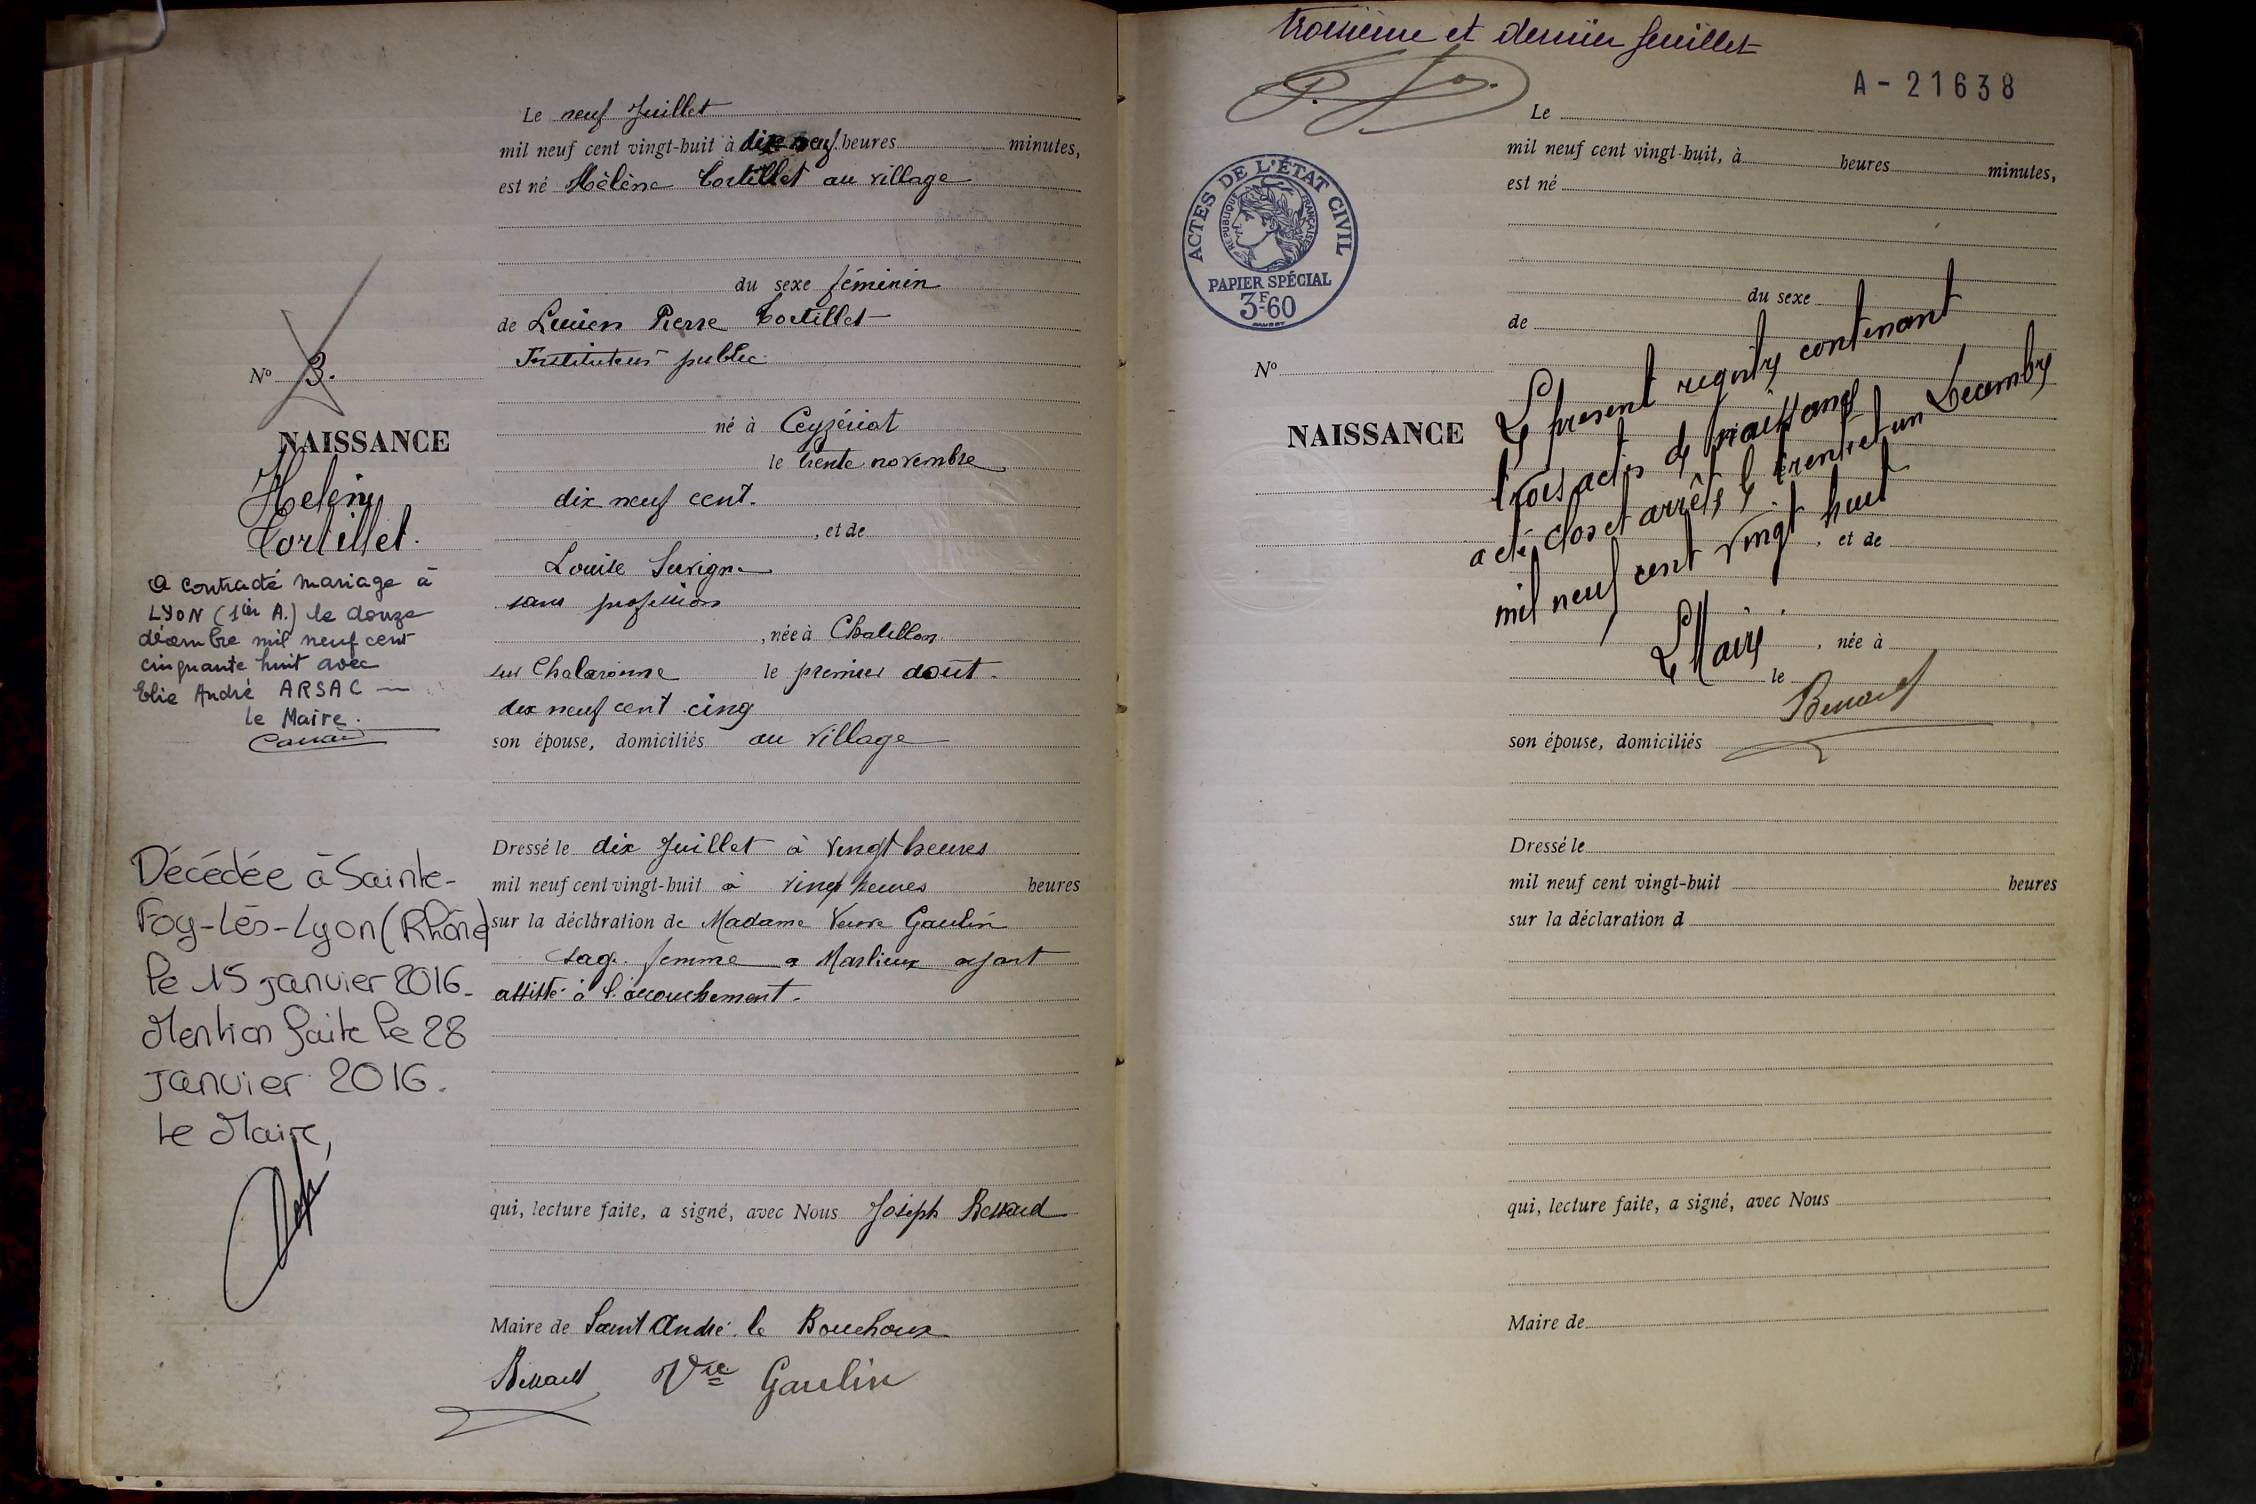 Le neuf Juillet
mil neuf cent vingt-huit à dix neuf heures minutes,
est né Hélène Tortillet au village
du sexe féminin
de Lucien Pierre Tortillet
Instituteur public
né à Ceyzériat
le trente novembre
dix neuf cent.
, et de
Louise Suvigne
sans profession
, née à Chatillon
sur Chalaronne le premier août.
dix neuf cent cinq
son épouse, domiciliés au village
Dressé le dix Juillet à vingt heures
mil neuf cent vingt-huit à vingt heures heures
sur la déclaration de Madame Veuve Gaulin
sage femme a Marlieux ayant
assisté à l'accouchement.
qui, lecture faite, a signé, avec Nous Joseph Bessard
Maire de Saint André le Bouchoux
Bessard Vve Gaulin
No 3.
NAISSANCE
Helene
Tortillet.
A contracté mariage à
LYON (1er A.) le douze
décembre mil neuf cent
cinquante huit avec
Elie André ARSAC —
le Maire.
Décédée à Sainte-
Foy-Lès-Lyon (Rhône)
le 15 janvier 2016.
Mention faite le 28
janvier 2016.
Le Maire,
troisième et dernier feuillet
A-21638
ACTES DE L'ÉTAT CIVIL
RÉPUBLIQUE FRANÇAISE
PAPIER SPÉCIAL
3F60
Le
mil neuf cent vingt-huit, à heures minutes,
est né
du sexe
de
No
NAISSANCE
Le present registre contenant
trois actes de naissance
a été clos et arrêté le trente et un Decembre
mil neuf cent vingt huit
, et de
Le Maire
, née à
le
Bessard
son épouse, domiciliés
Dressé le
mil neuf cent vingt-huit heures
sur la déclaration d
qui, lecture faite, a signé, avec Nous
Maire de